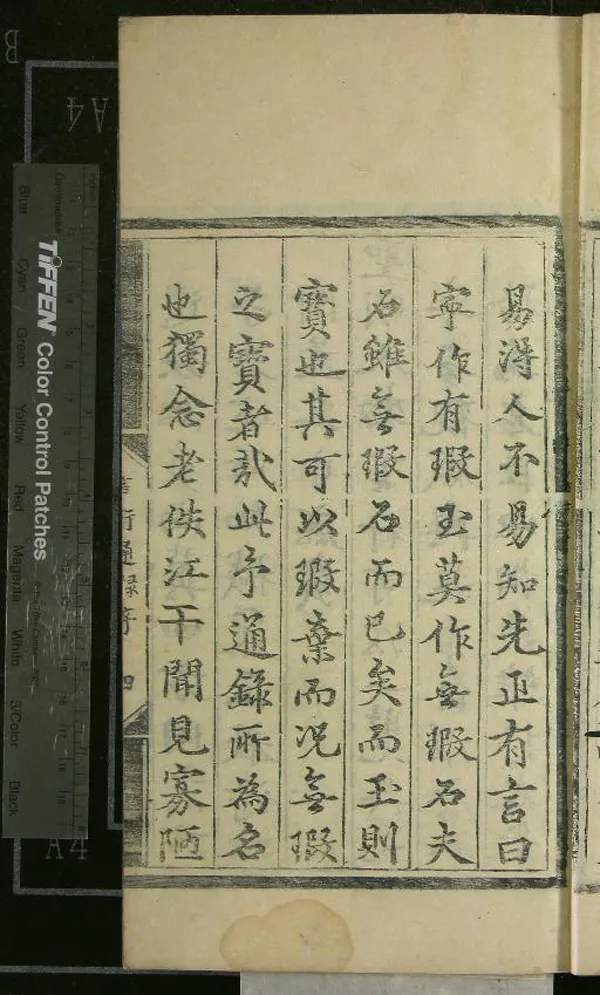 易得人不易知先正有言曰
寧作有瑕玉莫作無瑕石夫
石雖無瑕石而已矣而玉則
寶也其可以瑕棄而况無瑕
之寶者哉此予通錄所為名
也獨念老佚江干聞見寡陋
行通錄序 四
TIFFEN Color Control Patches
Blue Cyan Green Yellow Red Magenta White 3/Color Black
Centimetres
A4
A4
B